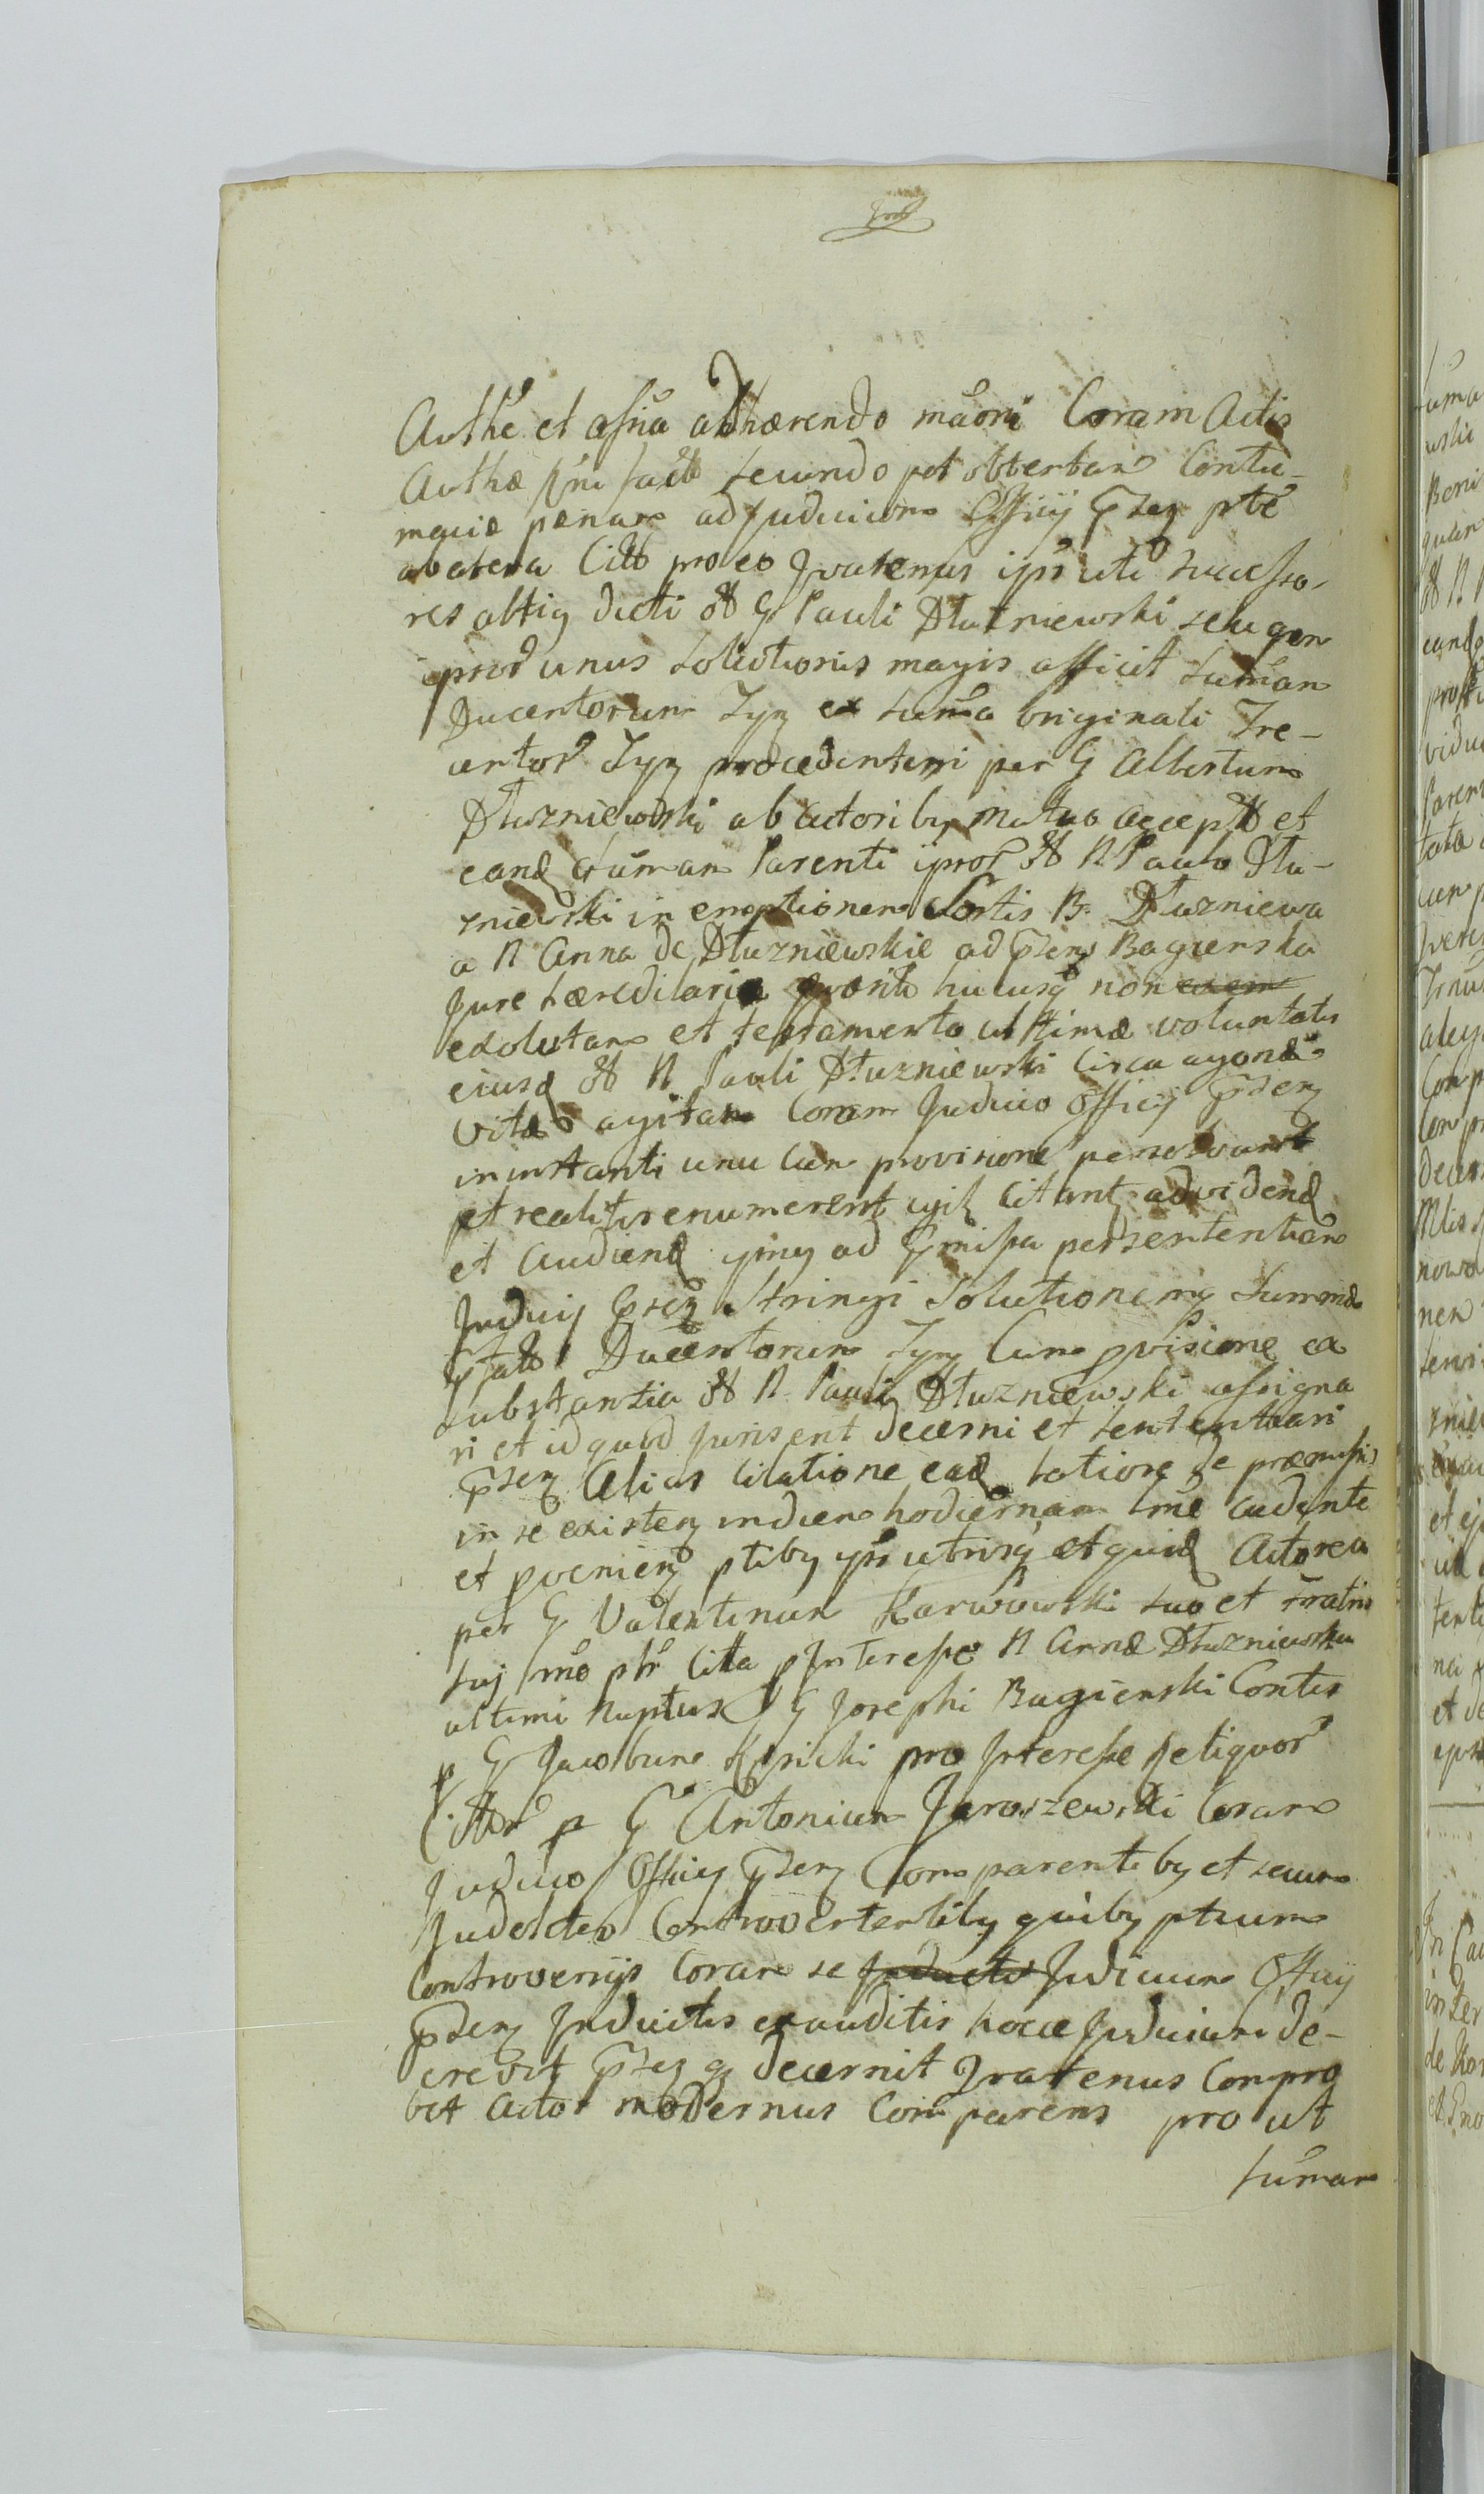 Authē et assna adhærendo maōni Coram Actis
Authæ facto secundo post obtentam Contu-
maciæ pænam ad Judicium Officij Gsen pte
ab altera Citto pro eo Quatenus ipsi uti successo-
res altiq dicti Ol G Pauli Dłuzniewski seu quem
iprod unus solutionis magis afficit sumam
Ducentorum Tyn ex suma originali Tre-
centor Tyn procedentem per G Albertum
Dłuzniewski ab actoriby mutuo accept et
eand sumam Parenti ipror Ol N Paulo Dłu-
zniewski in emptionem Sortis B. Dłuzniewa
a N Anna de Dłuzniewskie ad Gsens Bagienska
Jure hæreditario hucusq non
exolutam et testamento ultimæ voluntatis
eiusd Ol N Pauli Dłuzniewski circa agone
vitæ Coram Judicio Officij Gsenz
in instanti unu cum provisione persolvant
et realiter enumerent Citant ad vidend
et Audiend ipsiusq ad Gmissa per sententiam
Judicij Gsen Stringi Solutionemq summæ
Gfatt Ducentorum Tyn Cum pvisione ex
substantia Ol N. Pauli Dłuzniewski assigna
ri et id quod Juris erit decerni et sententiari
Gsen Alias Citatione ead latiore de præmissis
in se existen in diem hodiernam tme cadente
et pvenien ptiby ipsis utrisq et quid Actorea
per G Valentinum Karwowski suo et fratris
suj nōe ptr Citta p Interesse N Annæ Dłuzniewska
ultimi Nuptus G Josephi Bagienski Contis
p G Jacobum pro Interesse Reliquor
Cittor p G Antonium Jaroszewski Coram
Judicio Officij Gsenz Comparentiby et secum
Judicter Controvertentiby quiby ptium
Controversijs Coram se Judicium Officij
Gsenz Inductis exauditis hocce Judicium de-
crevit Gsenz q decernit Quatenus Compro
bet Actor modernus Comparens pro ut
sumam